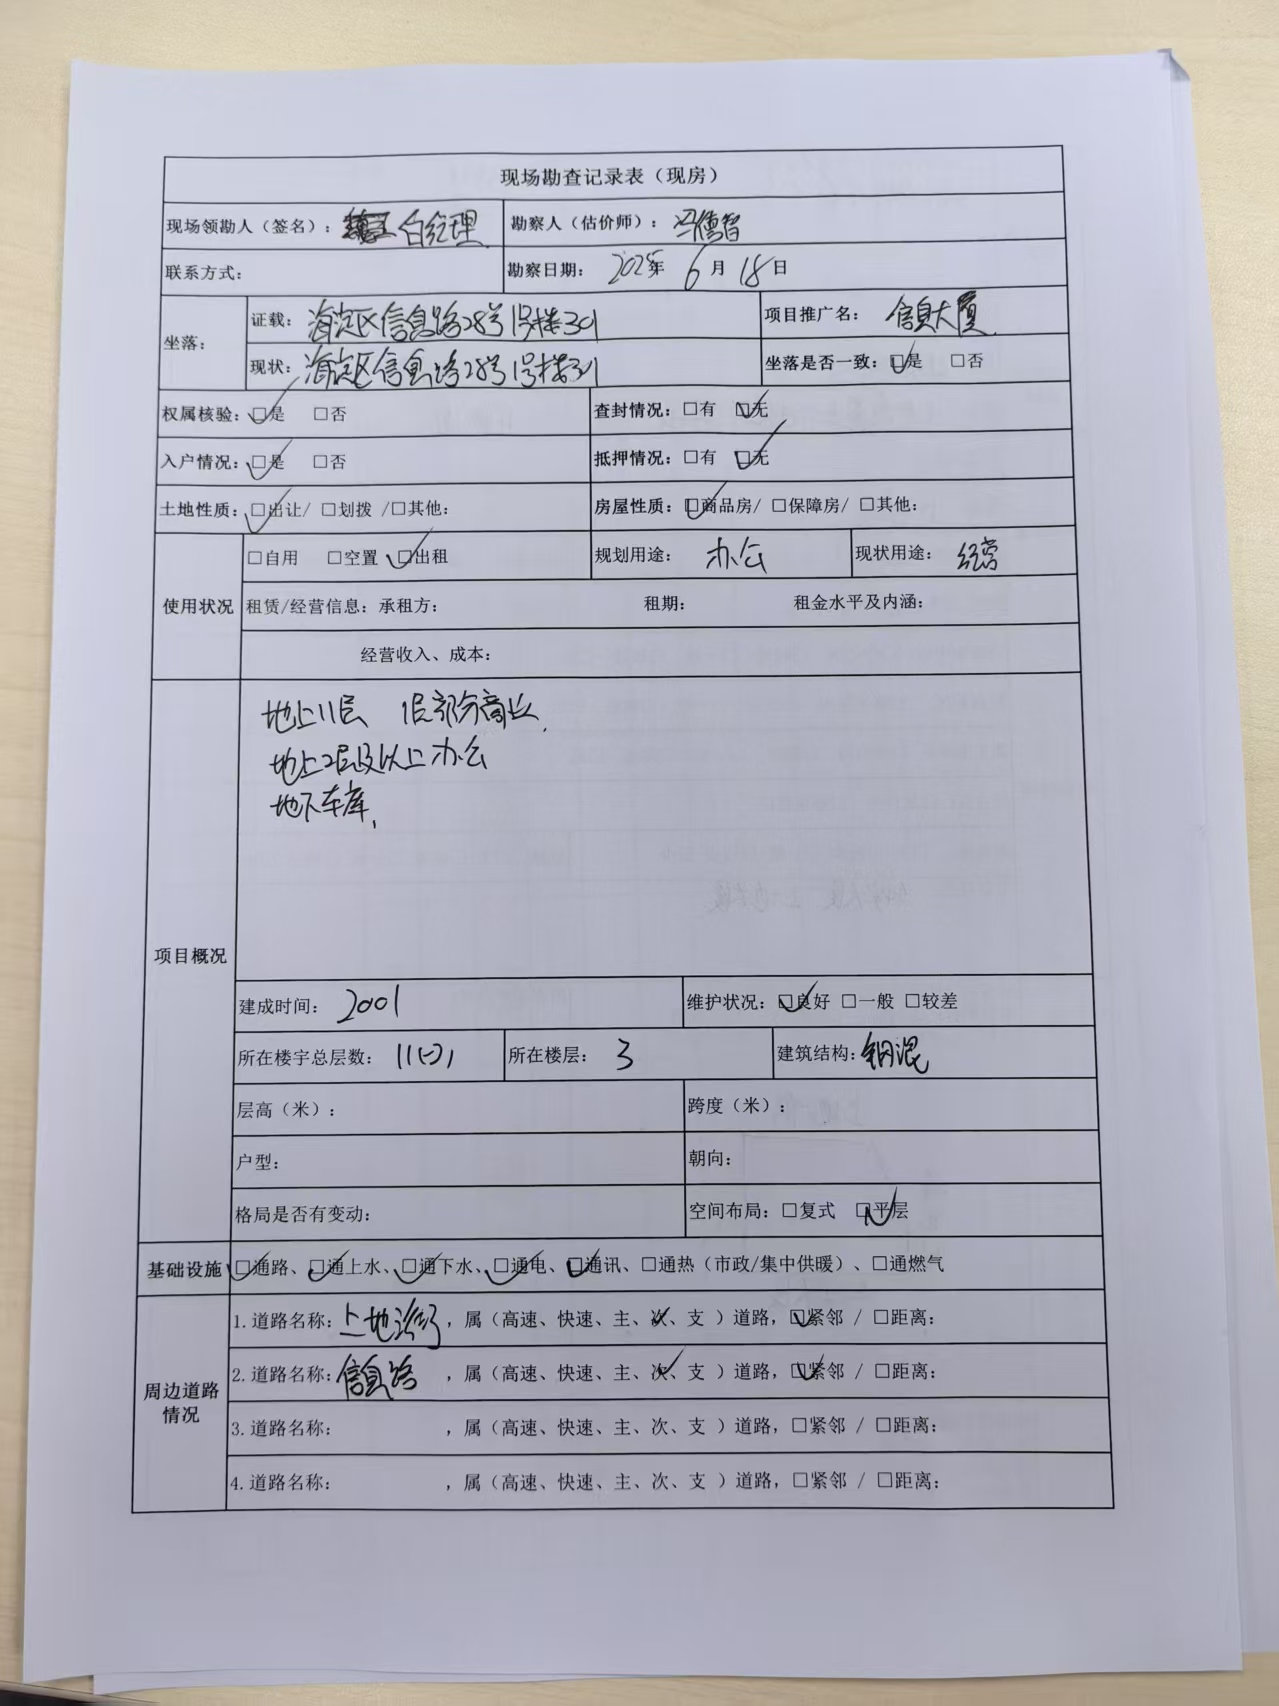 现场勘查记录表（现房）
现场领勘人（签名）： 白经理 勘察人（估价师）： 冯德智
联系方式： 勘察日期： 2025年 6月 18日
坐落： 证载： 海淀区信息路28号1号楼301 项目推广名： 信息大厦
现状： 海淀区信息路28号1号楼301 坐落是否一致：☑是 □否
权属核验：☑是 □否 查封情况：□有 ☑无
入户情况：☑是 □否 抵押情况：□有 ☑无
土地性质：☑出让/ □划拨 /□其他： 房屋性质：☑商品房/ □保障房/ □其他：
使用状况 □自用 □空置 ☑出租 规划用途： 办公 现状用途： 经营
租赁/经营信息：承租方： 租期： 租金水平及内涵：
经营收入、成本：
项目概况
地上11层 1层部分商业，
地上2层及以上办公
地下车库，
建成时间： 2001 维护状况：☑良好 □一般 □较差
所在楼宇总层数： 11(-1) 所在楼层： 3 建筑结构：钢混
层高（米）： 跨度（米）：
户型： 朝向：
格局是否有变动： 空间布局：□复式 ☑平层
基础设施 ☑通路、☑通上水、☑通下水、☑通电、☑通讯、□通热（市政/集中供暖）、□通燃气
周边道路情况
1.道路名称： ，属（高速、快速、主、次✓、支 ）道路，☑紧邻 / □距离：
2.道路名称：信息路 ，属（高速、快速、主、次✓、支 ）道路，☑紧邻 / □距离：
3.道路名称： ，属（高速、快速、主、次、支 ）道路，□紧邻 / □距离：
4.道路名称： ，属（高速、快速、主、次、支 ）道路，□紧邻 / □距离：